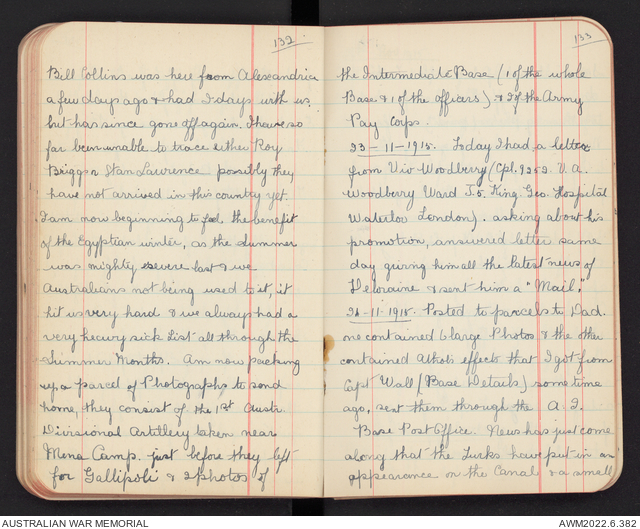 132.
Bill Collins was here from Alexandria
a few days ago & had 2 days with us,
but has since gone off again. I have so
far been unable to trace either Roy
Briggs or Stan Lawrence possibly they
have not arrived in this country yet.
I am now beginning to feel the benefit
of the Egyptian winter, as the Summer
was mighty severe last & we
Australians not being used to it, it
hit us very hard & we always had a
very heavy sick list all through the
Summer Months. Am now packing
up a parcel of Photographs to send
home, they consist of the 1st Austr.
Divisional Artillery taken near
Mena Camp. just before they left
for Gallipoli & 2 photos of
133
the Intermediate Base (1 of the whole
Base & 1 of the officers) & 2 of the Army
Pay Corps.
23-11-1915. Today I had a letter
from Viv Woodbery (Cpl. 9252. V. A.
Woodberry Ward J.5. King Geo. Hospital
Waterloo London). asking about his
promotion, answered letter same
day giving him all the latest news of
Deloraine & sent him a "Mail."
26-11-1915. Posted to parcels to Dad.
one contained 6 large Photos & the other
contained Athol's effects that I got from
Capt Wall (Base Details) some time
ago, sent them through the A. I.
Base Post Office. News has just come
along that the Turks have put in an
appearance on the Canal & a small
AUSTRALIAN WAR MEMORIAL
AWM2022.6.382